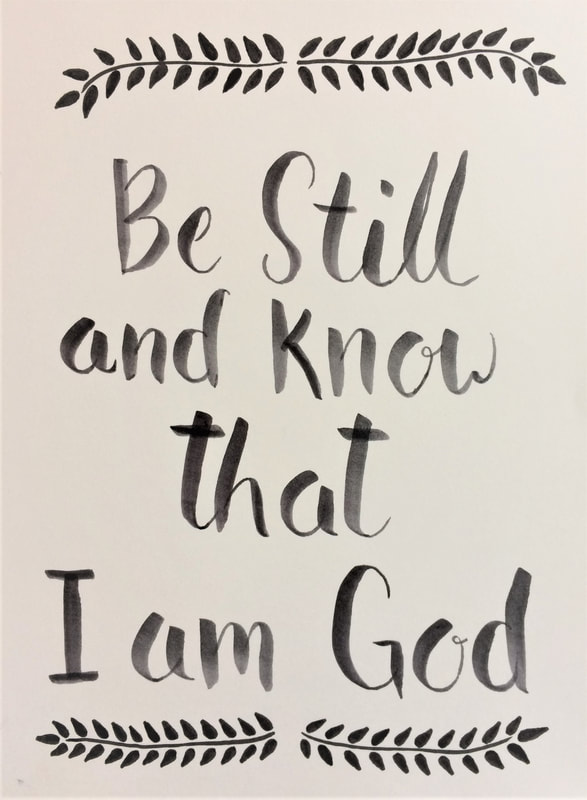 Be Still
and Know
that
I am God